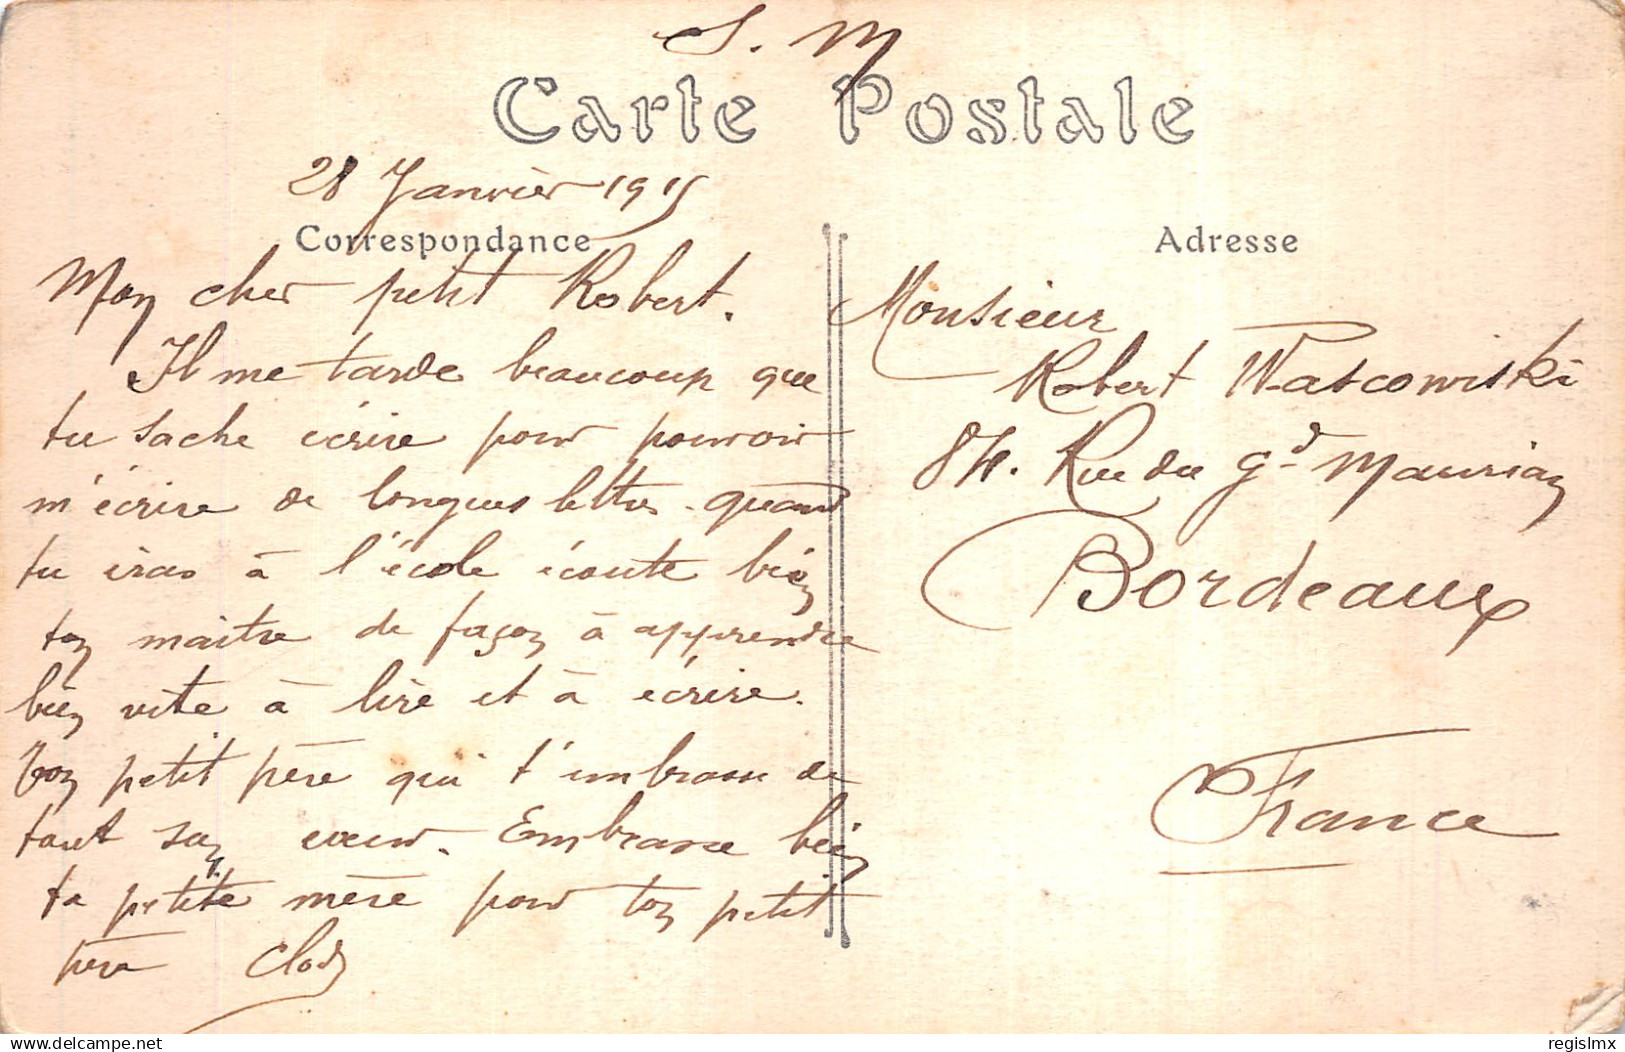 S. M
Carte Postale
28 Janvier 1915
Correspondance
Mon cher petit Robert.
Il me tarde beaucoup que
tu sache écrire pour pouvoir
m'écrire de longues lettres. quand
tu iras à l'école écoute bien
ton maitre de façon à apprendre
bien vite à lire et à écrire.
Ton petit père qui t'embrasse de
tout son cœur. Embrasse bien
ta petite mère pour ton petit
père
Adresse
Monsieur
Robert
84. Rue du Gd Maurian
Bordeaux
France
delcampe.net
regislmx